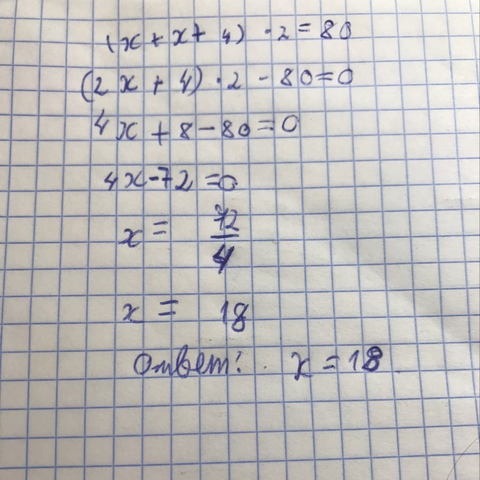 (x + x + 4) · 2 = 80
(2x + 4) · 2 - 80 = 0
4x + 8 - 80 = 0
4x - 72 = 0
x = 72/4
x = 18
Ответ: x = 18